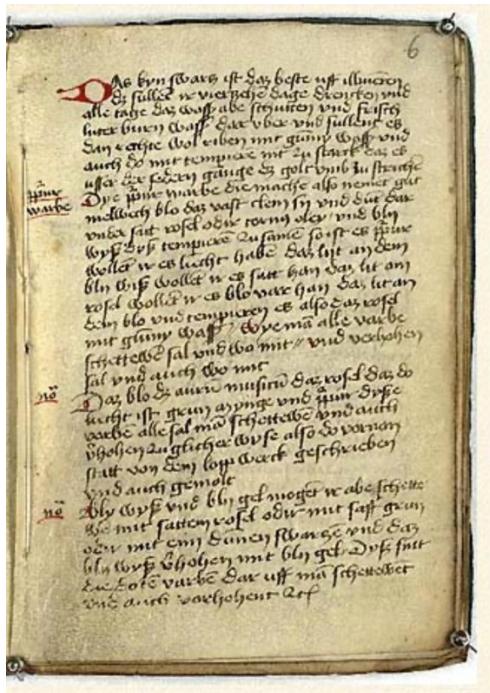 6
Das kyn swarz ist daz beste uff illuieren
dz sullet ir vierzehen dage drencken und
alle tage daz wasß abe schutten und frisch
luter burn wasß dar uber und sullent es
dan rechte wol riben mit gummy wasß und
auch do mit tempiere nit zu starck daz es
usser der federn gange dz golt umb zu strichē
ꝓpur varbe
Dye ꝓpur varbe die mache also nemet gut
blo daz vast clein sy und dut dar
under satt rosel oder oley und bly
wyß dyß tempieren zusamē so ist es ꝓpur
wollet ir es liecht habē daz lijt an dem
bly wiß wollet ir es satt han daz lit am
rosel wollet ir es blo var han daz lit an
dem blo und tempieren es also daz rosel
mit gummy wasß wye mā alle varbe
schettewē sal und wo mit und verhohen
sal und auch wo mit
nō
Daz blo dz aurū musicū daz rosel daz do
lucht ist grun mynge und ꝓpur dysse
varbē alle sal mā schettewē und auch
v̄hohen zu glicher wyse also do vornen
statt von dem loupwerck geschrieben
und auch gemolt
nō
Bly wyß und bly gel moget ir abe schette
we mit sattem rosel oder mit safft grun
oder mit eim dunen swarzē und daz
bly wyß v̄hohen mit bly gel Dyß sint
die dotē varbē dar uff mā schettewet
und auch verhohent etc